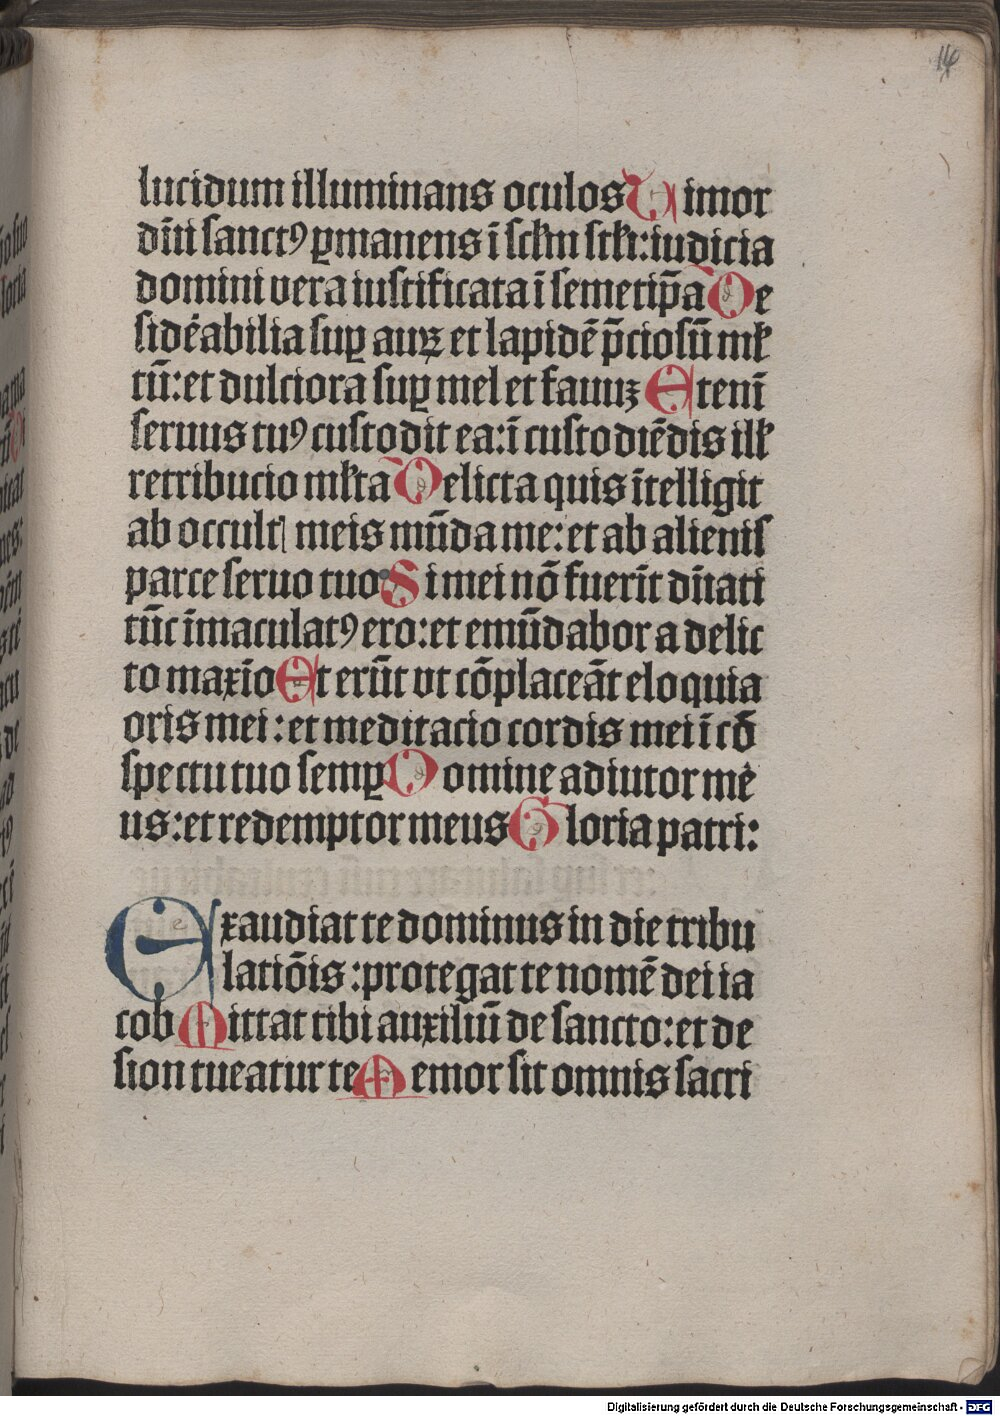 14
lucidum illuminans oculos Timor
dñi sanctꝰ ꝑmanens ī sclm̄ scli: iudicia
domini vera iustificata ī semetip̄a De
sidēabilia suꝑ auꝝ et lapidē p̄ciosū ml
tū: et dulciora suꝑ mel et fauuꝝ Etenī
seruus tuꝰ custodit ea: ī custodiēdis ill
retribucio mlta Delicta quis ītelligit
ab occult meis mūda me: et ab alienis
parce seruo tuo Si mei nō fuerīt dn̄ati
tūc īmaculatꝰ ero: et emūdabor a delic
to maxīo Et erūt vt cōplaceāt eloquia
oris mei: et meditacio cordis mei ī cō
spectu tuo semꝑ Domine adiutor me
us: et redemptor meus Gloria patri:
Exaudiat te dominus in die tribu
latiōis: protegat te nomē dei ia
cob Mittat tibi auxiliū de sancto: et de
sion tueatur te Memor sit omnis sacri
Digitalisierung gefördert durch die Deutsche Forschungsgemeinschaft - DFG